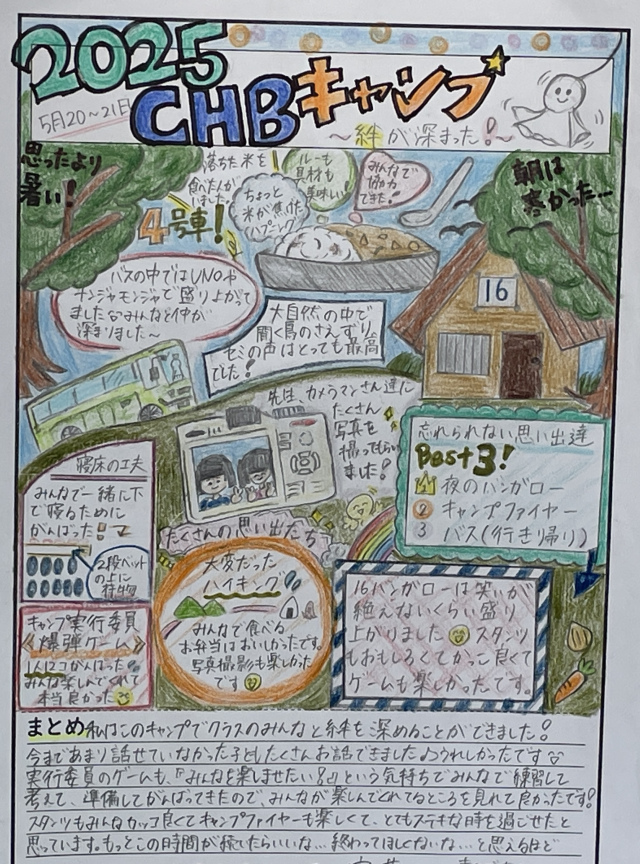 2025
CHBキャンプ
5月20～21日
～絆が深まった!～
思ったより
暑い!
朝は
寒かった…
落ちた米を
食べた人が
いました。
ちょっと
米が焦げた
ハプニング
ルーも
具材も
美味しい!
みんなで
協力
できた!
4号車!
バスの中ではUNOや
ナンジャモンジャで盛り上がって
ましたみんなと仲が
深まりました～
大自然の中で
聞く鳥のさえずり、
セミの声はとっても最高
でした!
16
先生、カメラマンさん達に
たくさん
写真を
撮ってもらい
ました!
たくさんの思い出たち
忘れられない思い出達
Best3!
夜のバンガロー
2 キャンプファイヤー
3 バス(行き帰り)
寝床の工夫
みんなで一緒に下
で寝るために
がんばった!
2段ベット
の上に
荷物
キャンプ実行委員
《爆弾ゲーム》
1人1コがんばった
みんな楽しんでくれて
本当良かった
大変だった
ハイキング
みんなで食べる
お弁当はおいしかったです。
写真撮影も楽しかった
です
16バンガローは笑いが
絶えないくらい盛り
上がりました スタンツ
もおもしろくてかっこ良くて
ゲームも楽しかったです。
まとめ 私はこのキャンプでクラスのみんなと絆を深めることができました!
今まであまり話せていなかった子ともたくさんお話できました♪うれしかったです
実行委員のゲームも、『みんなを楽しませたい!』という気持ちでみんなで練習して
考えて、準備してがんばってきたので、みんなが楽しんでくれてるところを見れて良かったです!
スタンツもみんなカッコ良くてキャンプファイヤーも楽しくて、とてもステキな時を過ごせたと
思っています。もっとこの時間が続いたらいいな…終わってほしくないな…と思えるほど